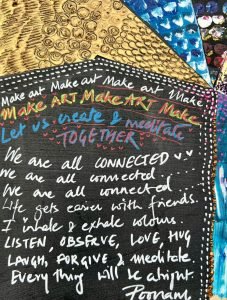 Make art Make art Make art & Make
Make ART Make ART Make
Let us create & meditate
TOGETHER
We are all CONNECTED
We are all connected
We are all connected
Life gets easier with friends.
I inhale & exhale colours.
LISTEN, OBSERVE, LOVE, HUG
LAUGH, FORGIVE & meditate.
Every thing will be alright.
Poonam